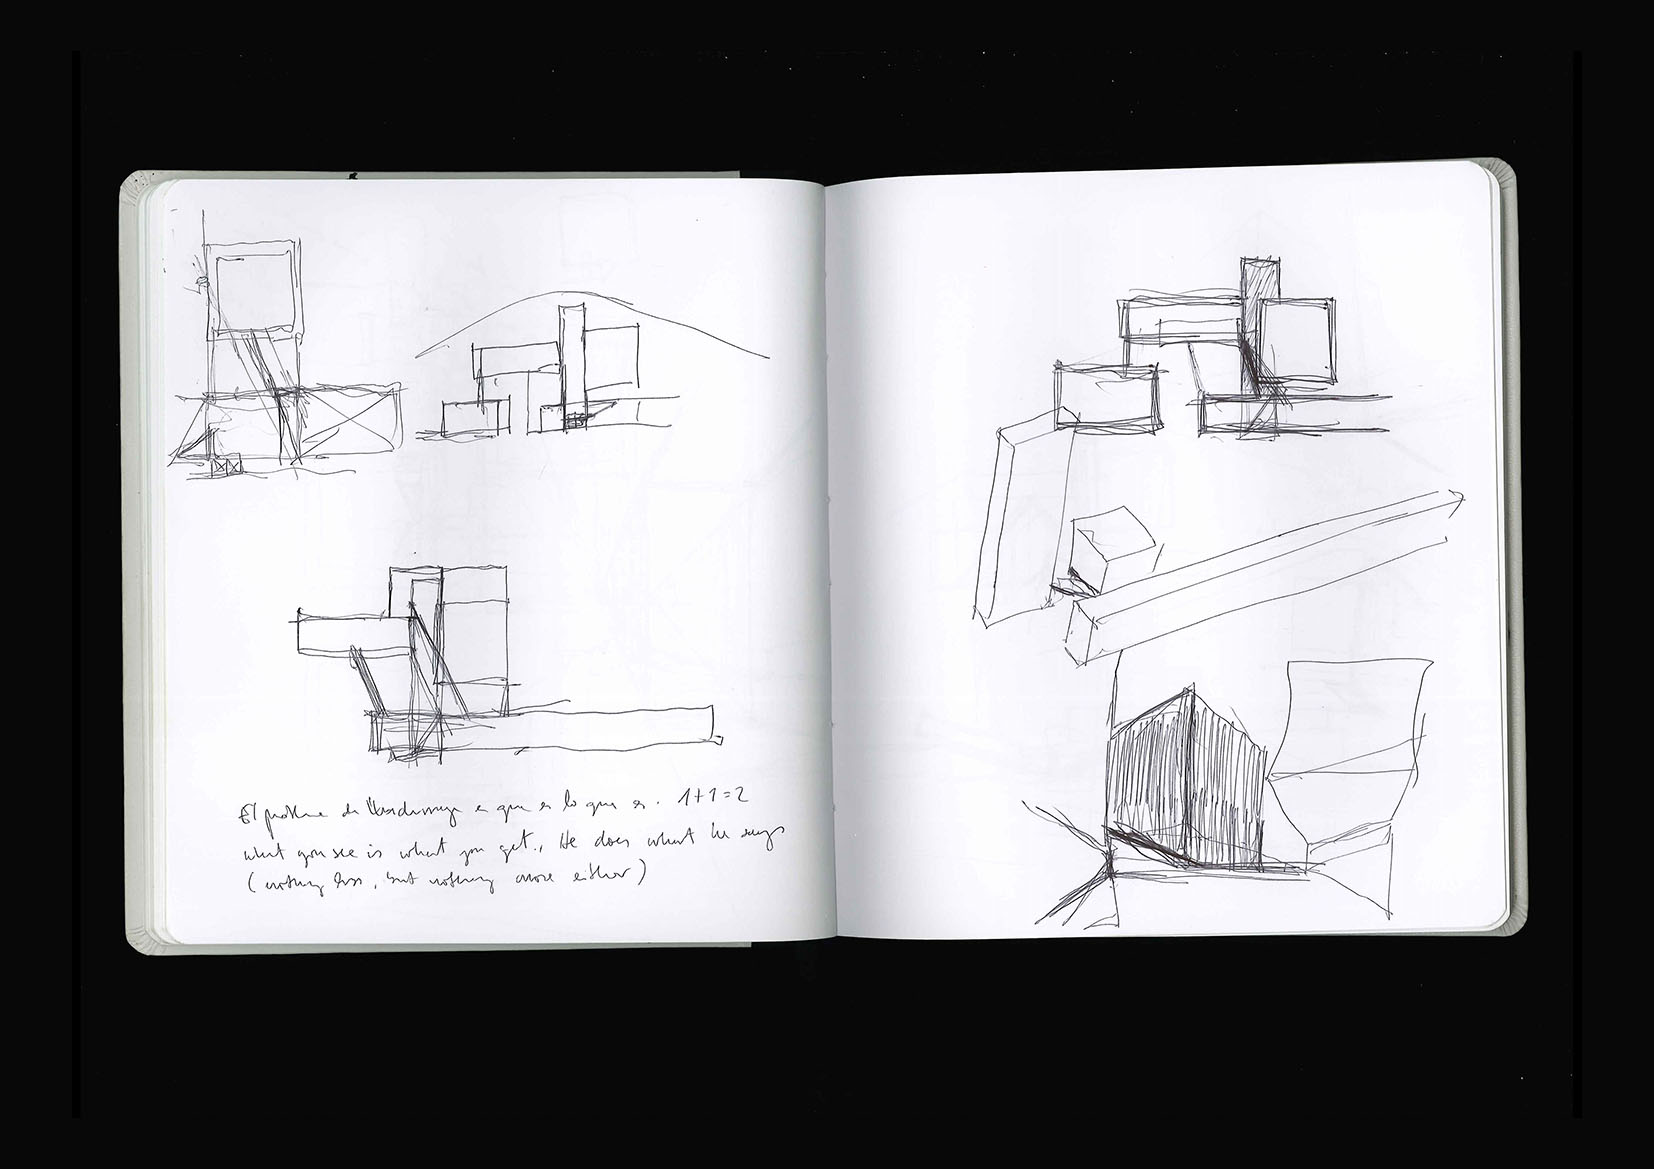 El problema de es que es lo que es. 1+1=2
what you see is what you get., He does what he says
(nothing less, but nothing more either)